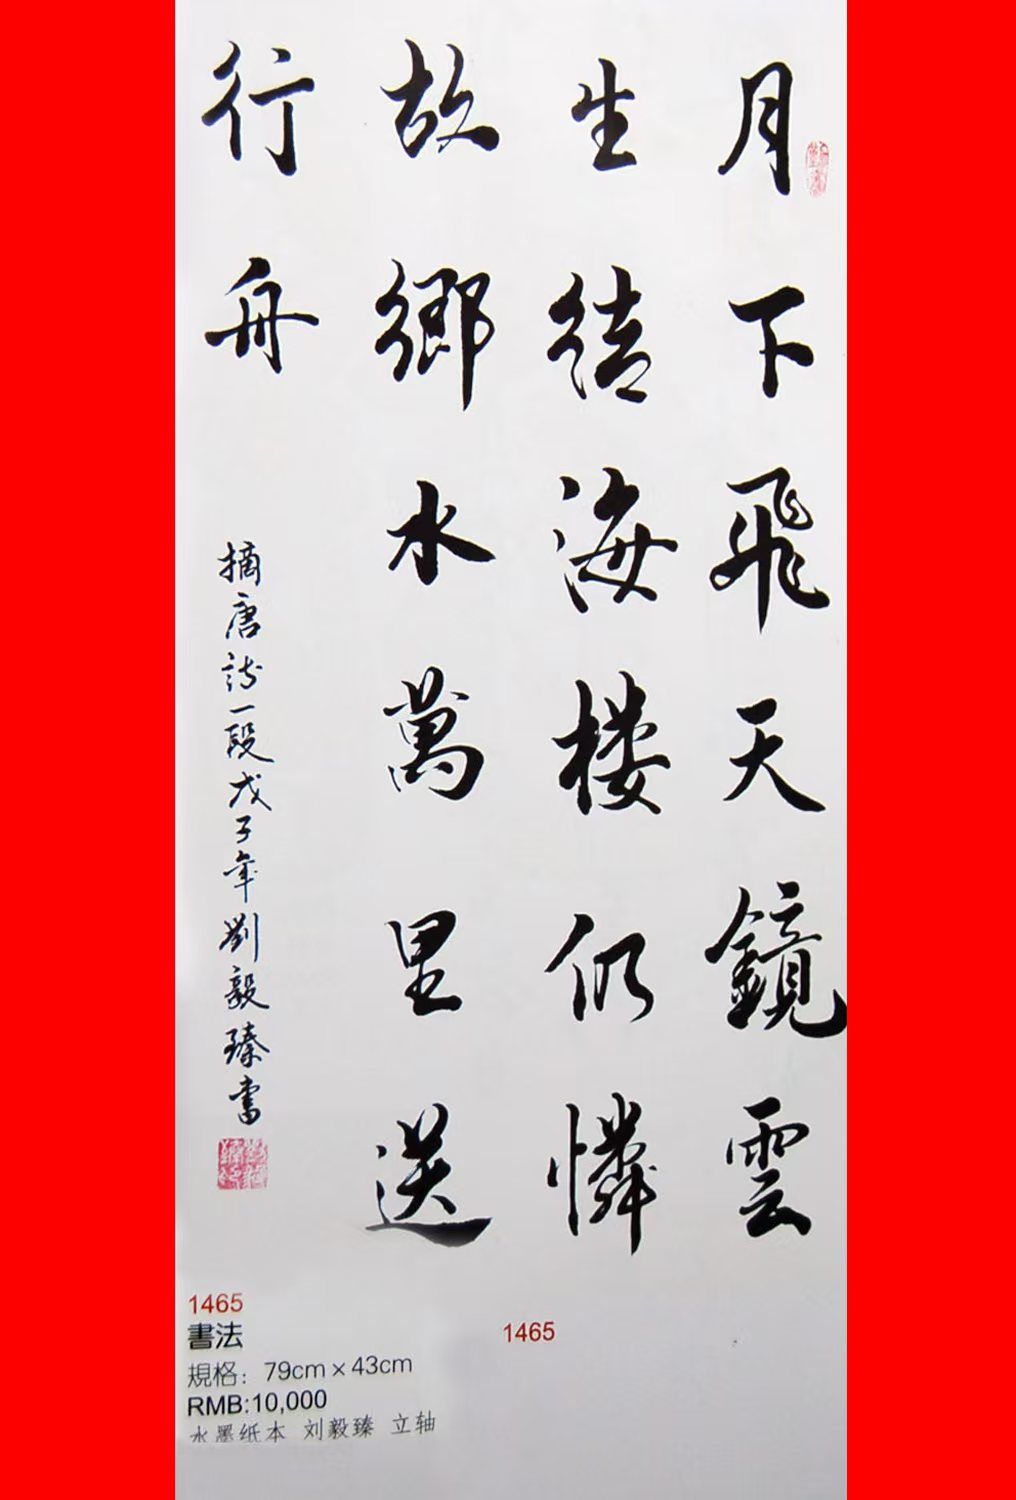 月下飛天鏡雲
生结海楼仍憐
故鄉水萬里送
行舟
摘唐诗一段戊子年劉毅臻書
1465
書法
規格：79cm×43cm
RMB:10,000
水墨纸本 刘毅臻 立轴
1465